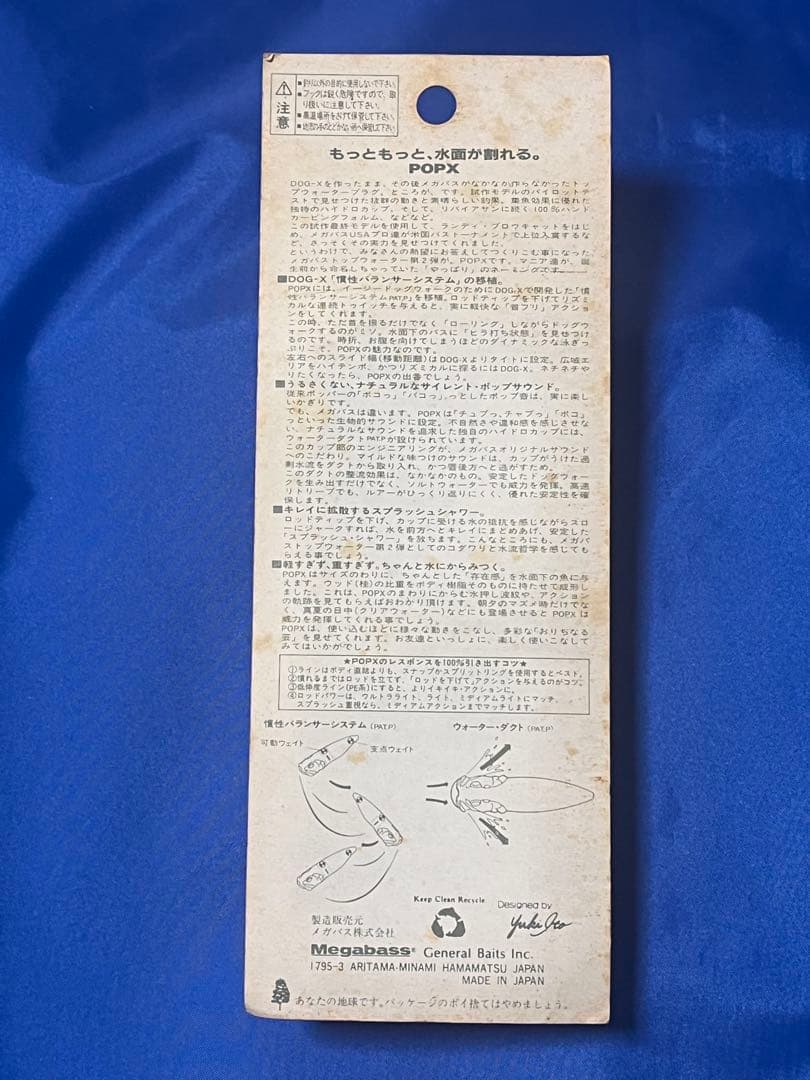 ⚠注意
■釣り以外の目的に使用しないで下さい。
■フックは鋭く危険ですので、取り扱いに注意して下さい。
■高温場所をさけて保管して下さい。
■幼児の手のとどかない所へ保管して下さい。
もっともっと、水面が割れる。
POPX
DOG-Xを作ったまま、その後メガバスがなかなか作らなかったトッ
プウォータープラグ。ところが、です。試作モデルのパイロットテ
ストで見せつけた抜群の動きと素晴らしい釣果。集魚効果に優れた
独特のハイドロカップ。そして、リバイアサンに続く100%ハンド
カービングフォルム、などなど。
この試作最終モデルを使用して、ランディ・ブロウキャットをはじ
め、メガバスUSAプロ達が米国バストーナメントで上位入賞するな
ど、さっそくその実力を見せつけてくれました。
というわけで、みなさんの熱望にお答えしてつくりこむ事になった、
メガバストップウォーター第2弾が。POPXです。マニア達が、誕
生前から命名しちゃっていた「やっぱり」のネーミングです。
■DOG-X「慣性バランサーシステム」の移植。
POPXには、イージードッグウォークのためにDOG-Xで開発した「慣
性バランサーシステムPAT.P」を移植。ロッドティップを下げてリズミ
カルな連続トゥイッチを与えると、実に軽快な「首フリ」アクショ
ンをしてくれます。
この時、ただ首を振るだけでなく「ローリング」しながらドッグウ
ォークするのがミソ。水面下のバスに「ヒラ打ち状態」を見せつけ
るのです。時折、お腹を向けてしまうほどのダイナミックな泳ぎっ
ぷりこそ、POPXの魅力なのです。
左右へのスライド幅(移動距離)はDOG-Xよりタイトに設定。広域エ
リアをハイテンポ、かつリズミカルに探るにはDOG-X、ネチネチや
りたくなったら、POPXの出番でしょう。
■うるさくない、ナチュラルなサイレント・ポップサウンド。
従来ポッパーの「ボコっ」「バコっ」っとしたポップ音は、実に楽し
いかぎりです。
でも、メガバスは違います。POPXは「チュプっ、チャプっ」「ポコ」
っといった生物的サウンドに設定。不自然さや違和感を感じさせな
い、ナチュラルなサウンドを追求した独自のハイドロカップには、
ウォーターダクトPAT.Pが設けられています。
このカップ部のエンジニアリングが、メガバスオリジナルサウンド
へのこだわり。マイルドな味つけのサウンドは、カップがうけた過
剰水流をダクトから取り入れ、かつ善後方へと逃がすため。
このダクトの整流効果は、なかなかのもの。安定したドッグウォー
クを生み出すだけでなく、ソルトウォーターでも威力を発揮。高速
リトリーブでも、ルアーがひっくり返りにくく、優れた安定性を確
保します。
■キレイに拡散するスプラッシュシャワー。
ロッドティップを下げ、カップに受ける水の抵抗を感じながらスロ
ーにジャークすれば、水を前方へとキレイにまとめあげ、安定した
「スプラッシュ・シャワー」を放ちます。こんなところにも、メガバ
ストップウォーター第2弾としてのコダワリと水流哲学を感じても
らえる事でしょう。
■軽すぎず、重すぎず。ちゃんと水にからみつく。
POPXはサイズのわりに、ちゃんとした「存在感」を水面下の魚に与
えます。ウッド(桂)の比重をボディ樹脂そのものに持たせて成形し
ました。これは、POPXのまわりにからむ水押し波紋や、アクション
の軌跡を見てもらえばおわかり頂けます。朝夕のマズメ時だけでな
く、真夏の日中(クリアウォーター)などにも登場させるとPOPXは
威力を発揮してくれる事でしょう。
POPXは、使い込むほどに様々な動きをこなし、多彩な「おりちなる
芸」を見せてくれます。お友達といっしょに、楽しく使いこなして
みてはいかがでしょう。
★POPXのレスポンスを100%引き出すコツ★
①ラインはボディ直結よりも、スナップかスプリットリングを使用するとベスト。
②慣れるまではロッドを立てず、「ロッドを下げて」アクションを与えるのがコツ。
③低伸度ライン(PE系)にすると、よりイキイキ・アクションに。
④ロッドパワーは、ウルトラライト、ライト、ミディアムライトにマッチ。
スプラッシュ重視なら、ミディアムアクションまでマッチします。
慣性バランサーシステム(PAT.P)
ウォーター・ダクト(PAT.P)
可動ウェイト
支点ウェイト
Keep Clean Recycle
Designed by
Yuki Ito
製造販売元
メガバス株式会社
Megabass® General Baits Inc.
1795-3 ARITAMA-MINAMI HAMAMATSU JAPAN
MADE IN JAPAN
あなたの地球です。パッケージのポイ捨てはやめましょう。